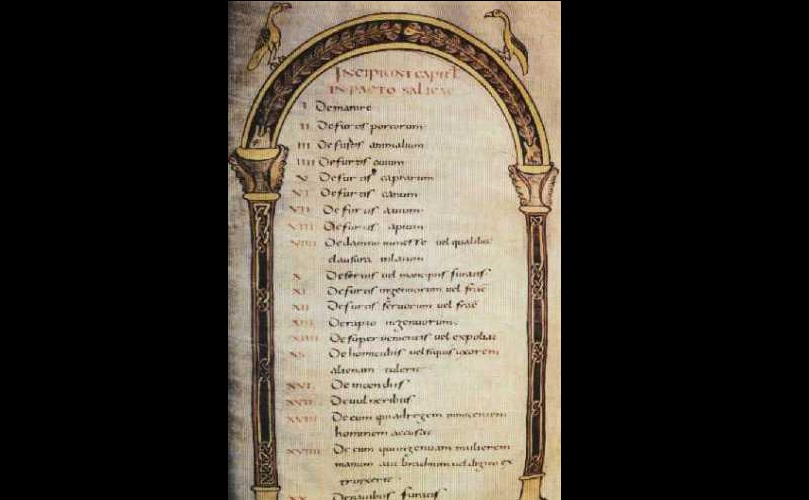 INCIPIUNT CAPITL
IN PACTO SALICAE
I De manire
II De furtis porcorum
III De furtis animalium
IIII De furtis ouium
V De furtis caprarum
VI De furtis canum
VII De furtis auium
VIII De furtis apium
VIIII De damno in messe uel qualibus
clausura inlatum
X De seruis uel mancipiis furatis
XI De furtis ingenuorum uel frac
XII De furtis seruorum uel frac
XIII De rapto ingenuorum
XIIII De superuenientis uel expoliat
XV De homicidiis uel siquis uxorem
alienam tulerit
XVI De incendiis
XVII De uulneribus
XVIII De eum qui ad regem innocentem
hominem accusat
XVIIII De eum qui ingenuam mulierem
manum aut brachium uel digito ex
trinxerit
XX De nauibus furatis